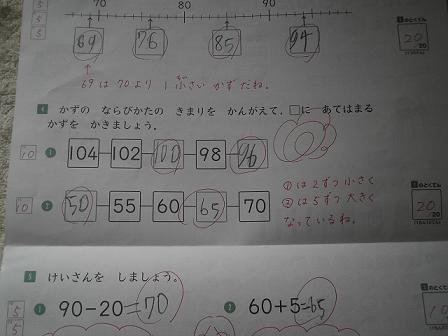 5
5
5
70
80
90
69
76
85
94
20
20
69は70より1小さいかずだね。
4 かずの ならびかたの きまりを かんがえて、□に あてはまる
かずを かきましょう。
10 ① 104 102 100 98 96
10 ② 50 55 60 65 70
①は2ずつ小さく
②は5ずつ大きく
なっているね。
20
20
5 けいさんを しましょう。
5 ① 90-20=70
② 60+5=65
5
10